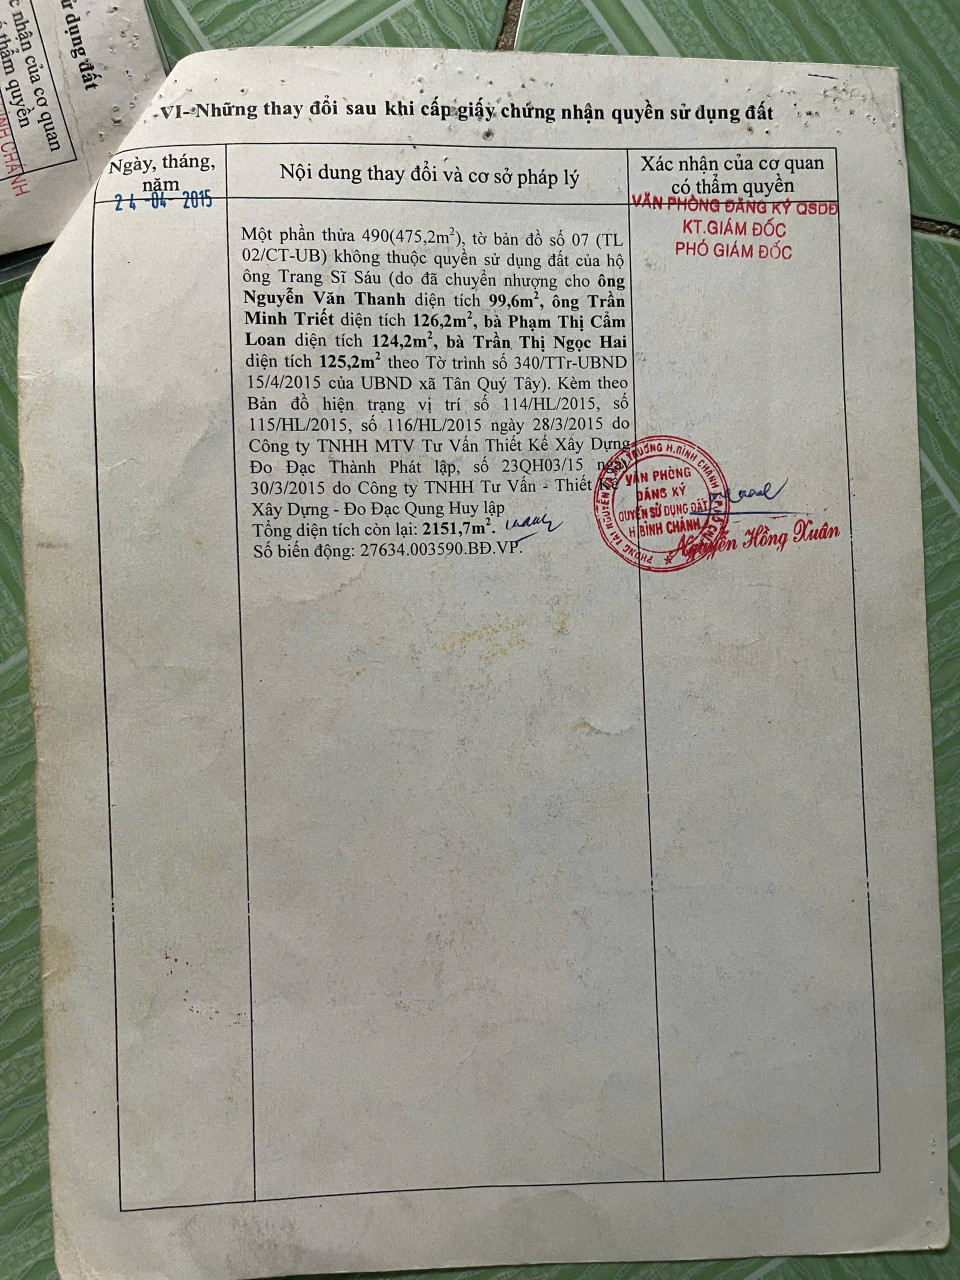 ử dụng đất
c nhận của cơ quan
ó thẩm quyền
ÌNH CHÁNH
VI- Những thay đổi sau khi cấp giấy chứng nhận quyền sử dụng đất
Ngày, tháng, năm
Nội dung thay đổi và cơ sở pháp lý
Xác nhận của cơ quan có thẩm quyền
24-04-2015
VĂN PHÒNG ĐĂNG KÝ QSDĐ
KT.GIÁM ĐỐC
PHÓ GIÁM ĐỐC
Một phần thửa 490(475,2m²), tờ bản đồ số 07 (TL
02/CT-UB) không thuộc quyền sử dụng đất của hộ
ông Trang Sĩ Sáu (do đã chuyển nhượng cho ông
Nguyễn Văn Thanh diện tích 99,6m², ông Trần
Minh Triết diện tích 126,2m², bà Phạm Thị Cẩm
Loan diện tích 124,2m², bà Trần Thị Ngọc Hai
diện tích 125,2m² theo Tờ trình số 340/TTr-UBND
15/4/2015 của UBND xã Tân Quý Tây). Kèm theo
Bản đồ hiện trạng vị trí số 114/HL/2015, số
115/HL/2015, số 116/HL/2015 ngày 28/3/2015 do
Công ty TNHH MTV Tư Vấn Thiết Kế Xây Dựng
Đo Đạc Thành Phát lập, số 23QH03/15 ngày
30/3/2015 do Công ty TNHH Tư Vấn - Thiết Kế
Xây Dựng - Đo Đạc Qung Huy lập
Tổng diện tích còn lại: 2151,7m².
Số biến động: 27634.003590.BĐ.VP.
VĂN PHÒNG
ĐĂNG KÝ
QUYỀN SỬ DỤNG ĐẤT
H.BÌNH CHÁNH
Nguyễn Hồng Xuân